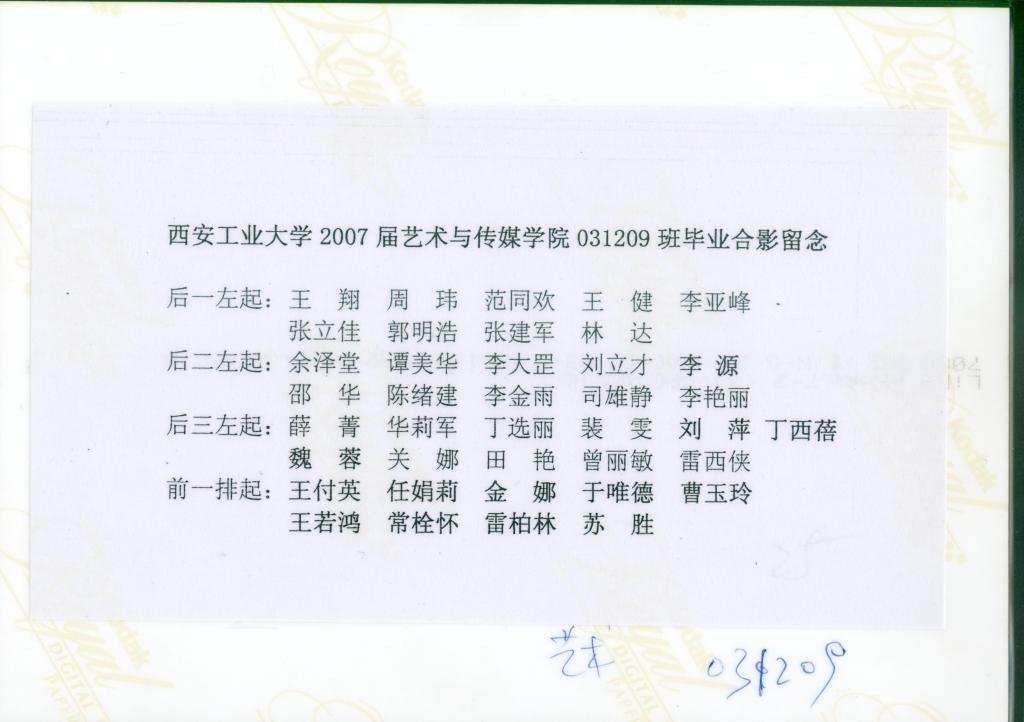 西安工业大学 2007 届艺术与传媒学院 031209 班毕业合影留念
后一左起：王 翔 周 玮 范同欢 王 健 李亚峰
张立佳 郭明浩 张建军 林 达
后二左起：余泽堂 谭美华 李大罡 刘立才 李 源
邵 华 陈绪建 李金雨 司雄静 李艳丽
后三左起：薛 菁 华莉军 丁选丽 裴 雯 刘 萍 丁西蓓
魏 蓉 关 娜 田 艳 曾丽敏 雷西侠
前一排起：王付英 任娟莉 金 娜 于唯德 曹玉玲
王若鸿 常栓怀 雷柏林 苏 胜
艺术 031209
Kodak
Royal
DIGITAL
PAPER